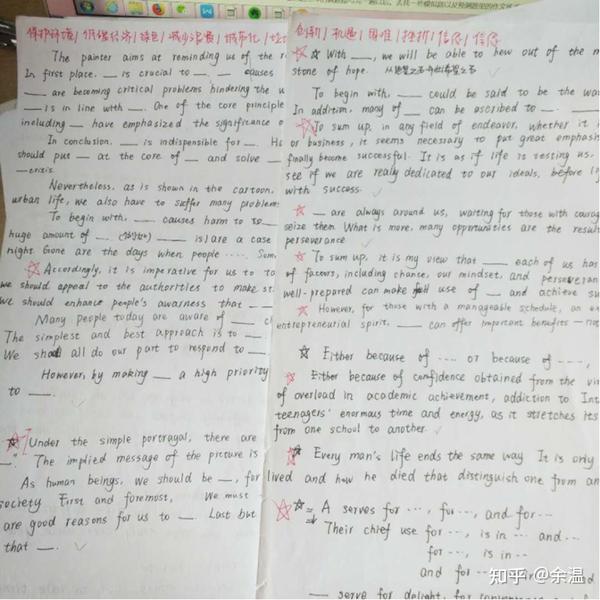 保护环境 | 低碳经济 | 绿色 | 减少浪费 | 城市化 |
The painter aims at reminding us of the
In first place, __ is crucial to __. __ causes
__ are becoming critical problems hindering the
__ is in line with __. One of the core principle
including __ have emphasized the significance o
In conclusion, __ is indispensible for __. H
should put __ at the core of __ and solve __
__ crisis.
Nevertheless, as is shown in the cartoon,
urban life, we also have to suffer many problem
To begin with, __ causes harm to __
huge amount of __. __ is|are a case
night. Gone are the days when people .... Som
☆ Accordingly, it is imperative for us to t
we should appeal to the authorities to make st
We should enhance people's awarness that __
Many people today are aware of __ c
The simplest and best approach is to __
We shall all do our part to respond to __
However, by making __ a high priority
to __.
☆ Under the simple portrayal, there are
__. The implied message of the picture is
As human beings, we should be __, for
society. First and foremost, We must
are good reasons for us to __. Last but
that __.
创新 | 机遇 | 困难 | 挫折 | 信念 | 信心
☆ With __, we will be able to hew out of the m
stone of hope.
To begin with, __ could be said to be the wa
In addition, many of __ can be ascribed to __.
☆ To sum up, in any field of endeavor, whether it i
or business, it seems necessary to put great emphasi
finally become successful. It is as if life is testing us,
see if we are really dedicated to our ideals, before li
with success.
☆ __ are always around us, waiting for those with courag
seize them. What is more, many opportunities are the result
perseverance
☆ To sum up, it is my view that __ each of us has
of factors, including chance, our mindset, and perseveran
well-prepared can make full use of __ and achieve su
☆ However, for those with a manageable schedule, an en
entrepreneurial spirit, __ can offer important benefits — no
☆ Either because of .... or because of ....,
☆ Either because of confidence obtained from the vi
of overload in academic achievement, addiction to Int
teenagers' enormous time and energy, as it stretches its
from one school to another.
☆ Every man's life ends the same way. It is only
lived and how he died that distinguish one from an
☆ ☆ A serves for ..., for ..., and for ...
Their chief use for ..., is in ... and ...
for ..., is in ...
and for ...
__ serve for delight, for
知乎 @余温